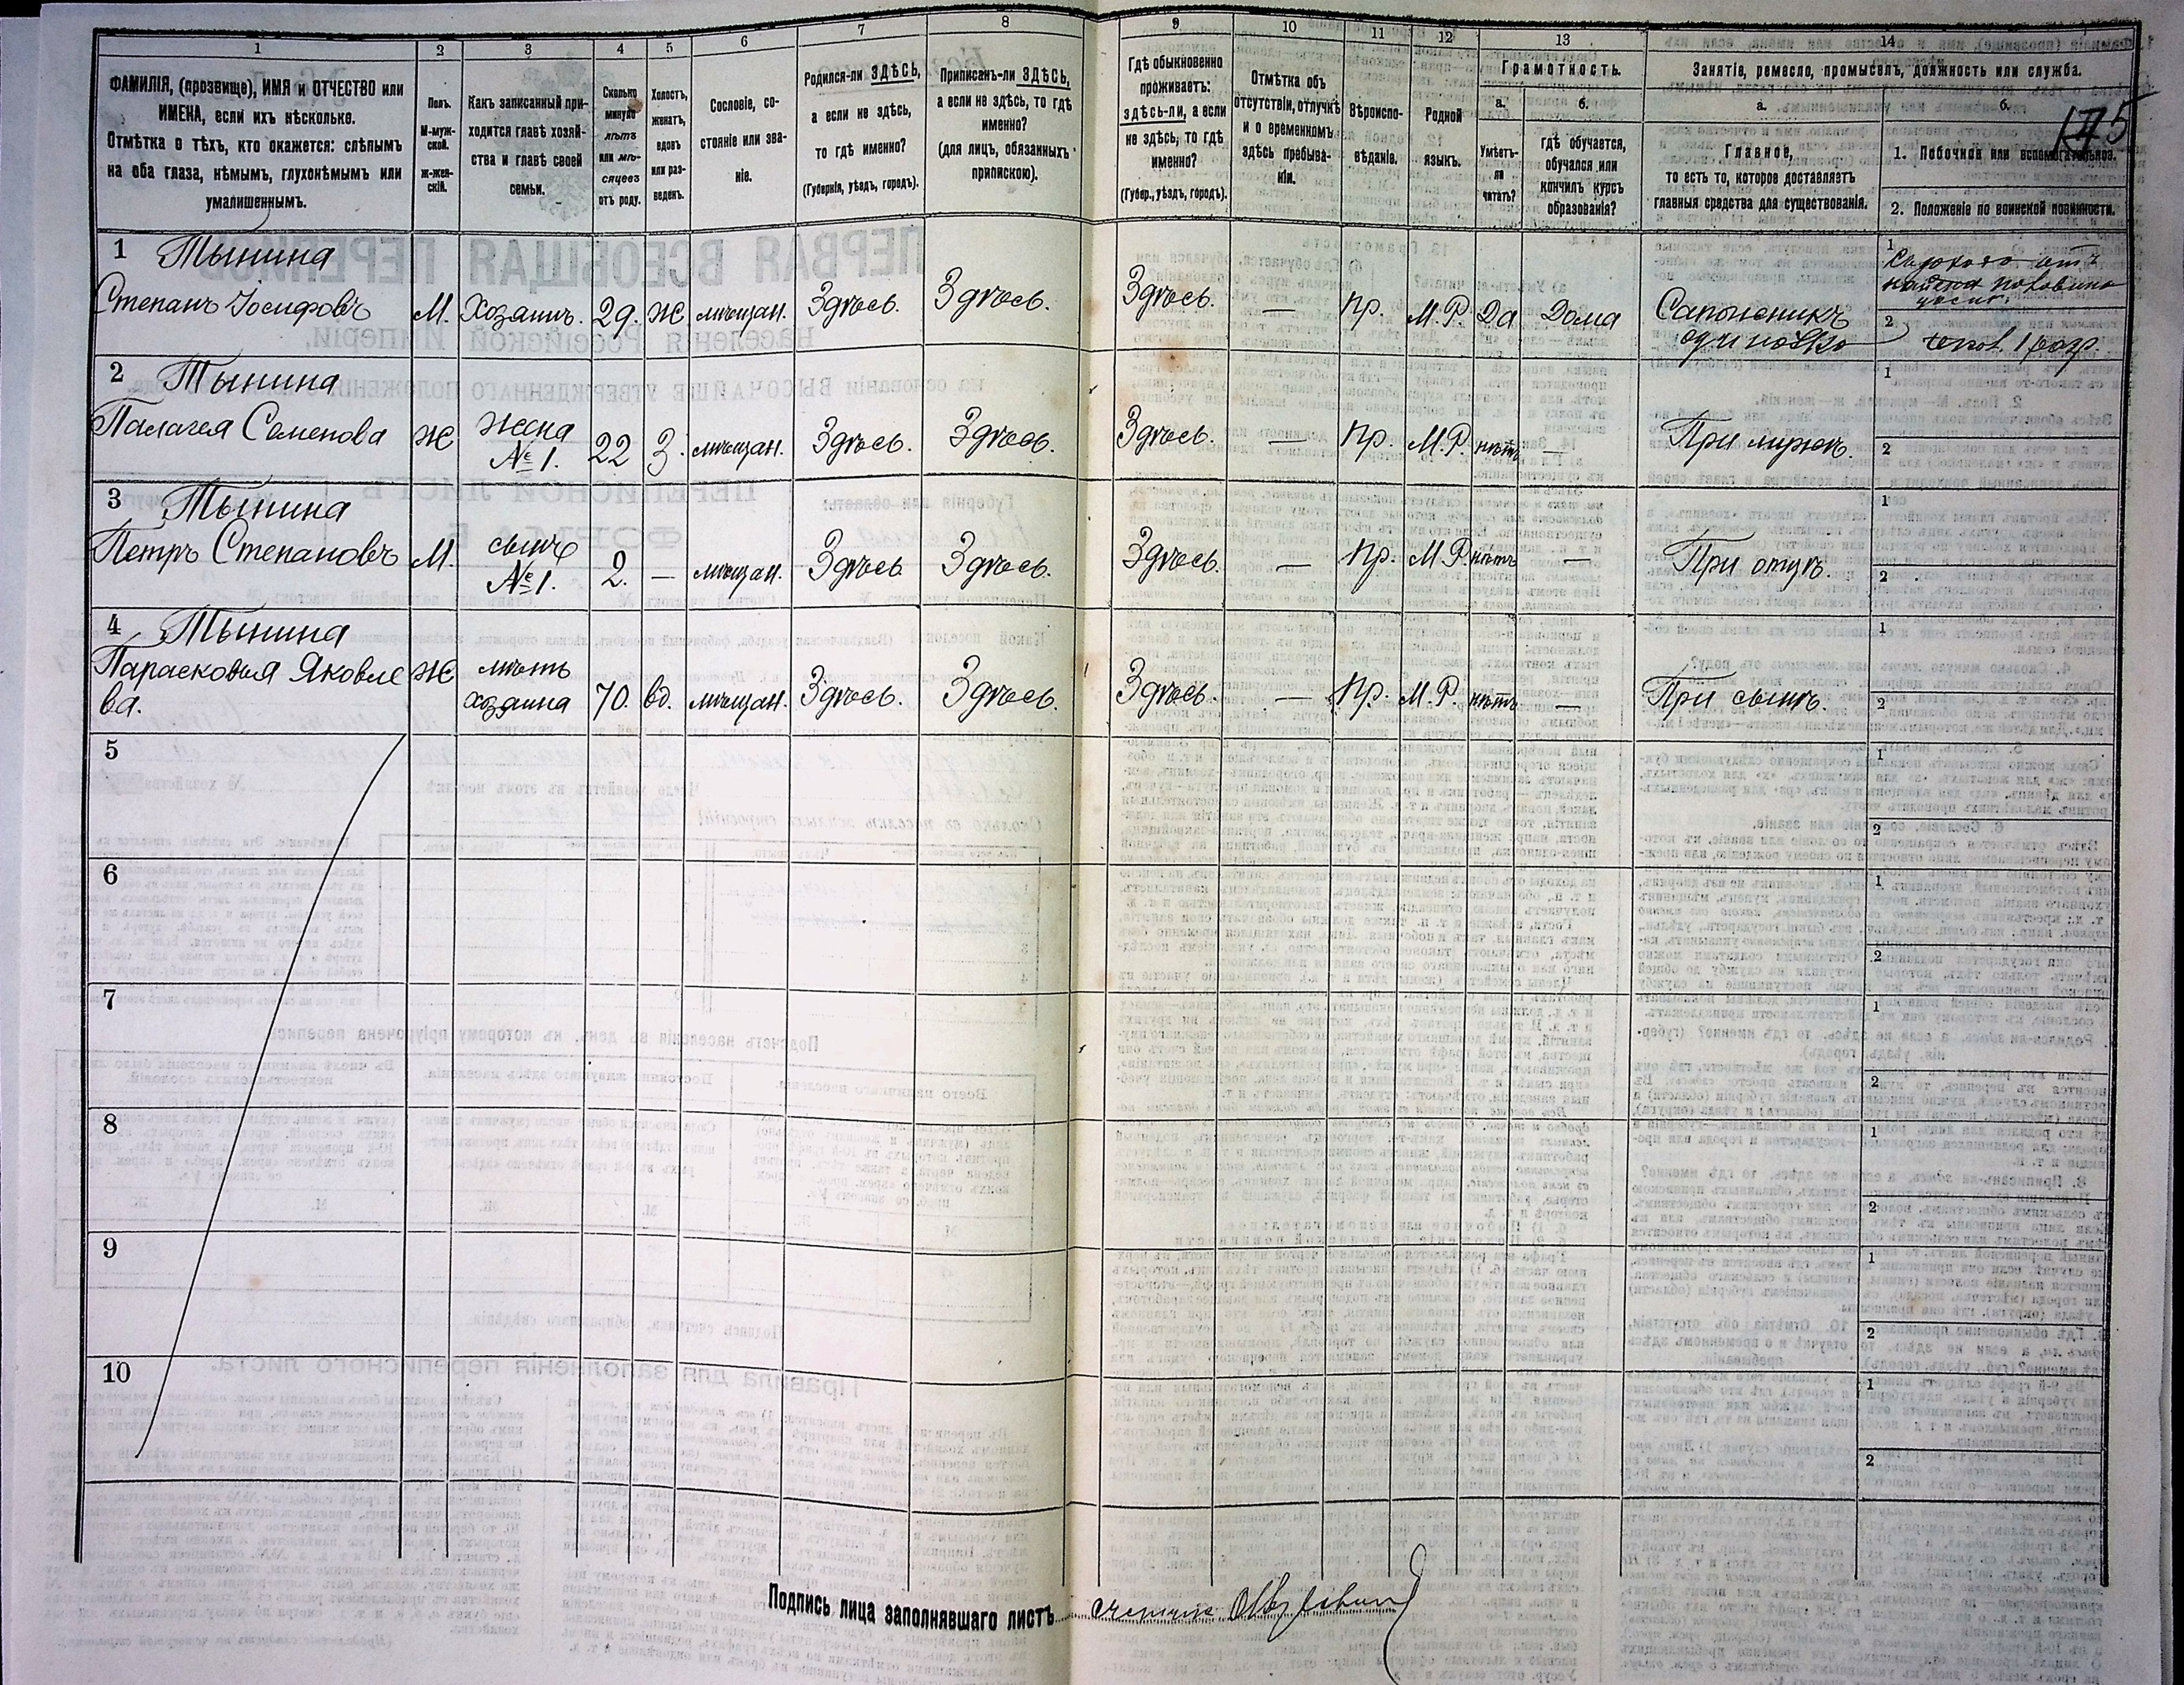 1 2 3 4 5 6 7 8 9 10 11 12 13 14
ФАМИЛІЯ, (прозвище), ИМЯ и ОТЧЕСТВО или
ИМЕНА, если ихъ нѣсколько.
Отмѣтка о тѣхъ, кто окажется: слѣпымъ
на оба глаза, нѣмымъ, глухонѣмымъ или
умалишеннымъ.
Полъ.
М-муж-
ской.
ж-жен-
скій.
Какъ записанный при-
ходится главѣ хозяй-
ства и главѣ своей
семьи.
Сколько
минуло
лѣтъ
или мѣ-
сяцевъ
отъ роду.
Холостъ,
женатъ,
вдовъ
или раз-
веденъ.
Сословіе, со-
стояніе или зва-
ніе.
Родился-ли ЗДѢСЬ,
а если не здѣсь,
то гдѣ именно?
(Губернія, уѣздъ, городъ).
Приписанъ-ли ЗДѢСЬ,
а если не здѣсь, то гдѣ
именно?
(для лицъ, обязанныхъ
припискою).
Гдѣ обыкновенно
проживаетъ:
здѣсь-ли, а если
не здѣсь, то гдѣ
именно?
(Губер., уѣздъ, городъ).
Отмѣтка объ
отсутствіи, отлучкѣ
и о временномъ
здѣсь пребыва-
ніи.
Вѣроиспо-
вѣданіе.
Родной
языкъ.
Грамотность.
а.
Умѣетъ-
ли
читать?
б.
гдѣ обучается,
обучался или
кончилъ курсъ
образованія?
Занятіе, ремесло, промыселъ, должность или служба.
а.
Главное,
то есть то, которое доставляетъ
главныя средства для существованія.
б.
1. Побочное или вспомогательное.
2. Положеніе по воинской повинности.
1 Тынина
Степанъ Іосифовъ М. Хозяинъ. 29. Ж мѣщан. Здѣсь. Здѣсь. Здѣсь. — Пр. М.Р. Да Дома Сапожникъ
одиночка
1
2
2 Тынина
Палагея Семенова Ж жена
№ 1. 22 З. мѣщан. Здѣсь. Здѣсь. Здѣсь. — Пр. М.Р. нѣтъ — При мужѣ.
1
2
3 Тынина
Петръ Степановъ М. сынъ
№ 1. 2. — мѣщан. Здѣсь Здѣсь. Здѣсь. — Пр. М.Р. нѣтъ — При отцѣ.
1
2
4 Тынина
Парасковья Яковле
ва. Ж мать
хозяина 70. вд. мѣщан. Здѣсь. Здѣсь. Здѣсь. — Пр. М.Р. нѣтъ — При сынѣ.
1
2
5
1
2
6
1
2
7
1
2
8
1
2
9
1
2
10
1
2
Подпись лица заполнявшаго листъ